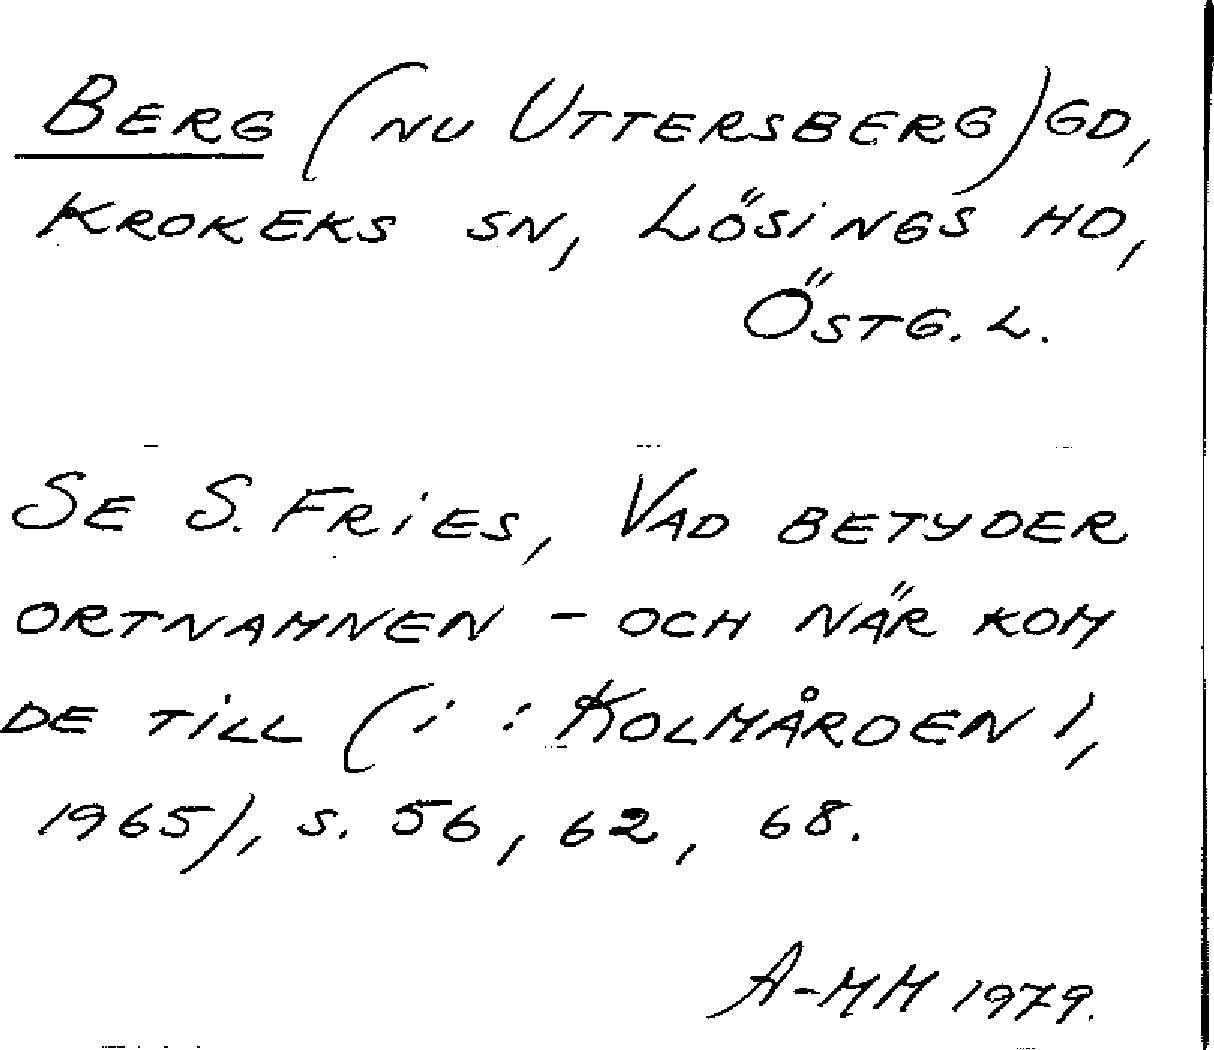 BERG (NU UTTERSBERG) GD,
KROKEKS SN, LÖSINGS HD,
ÖSTG. L.
SE S. FRIES, VAD BETYDER
ORTNAMNEN - OCH NÄR KOM
DE TILL (i : KOLMÅRDEN 1,
1965), S. 56, 62, 68.
A-MM 1979.